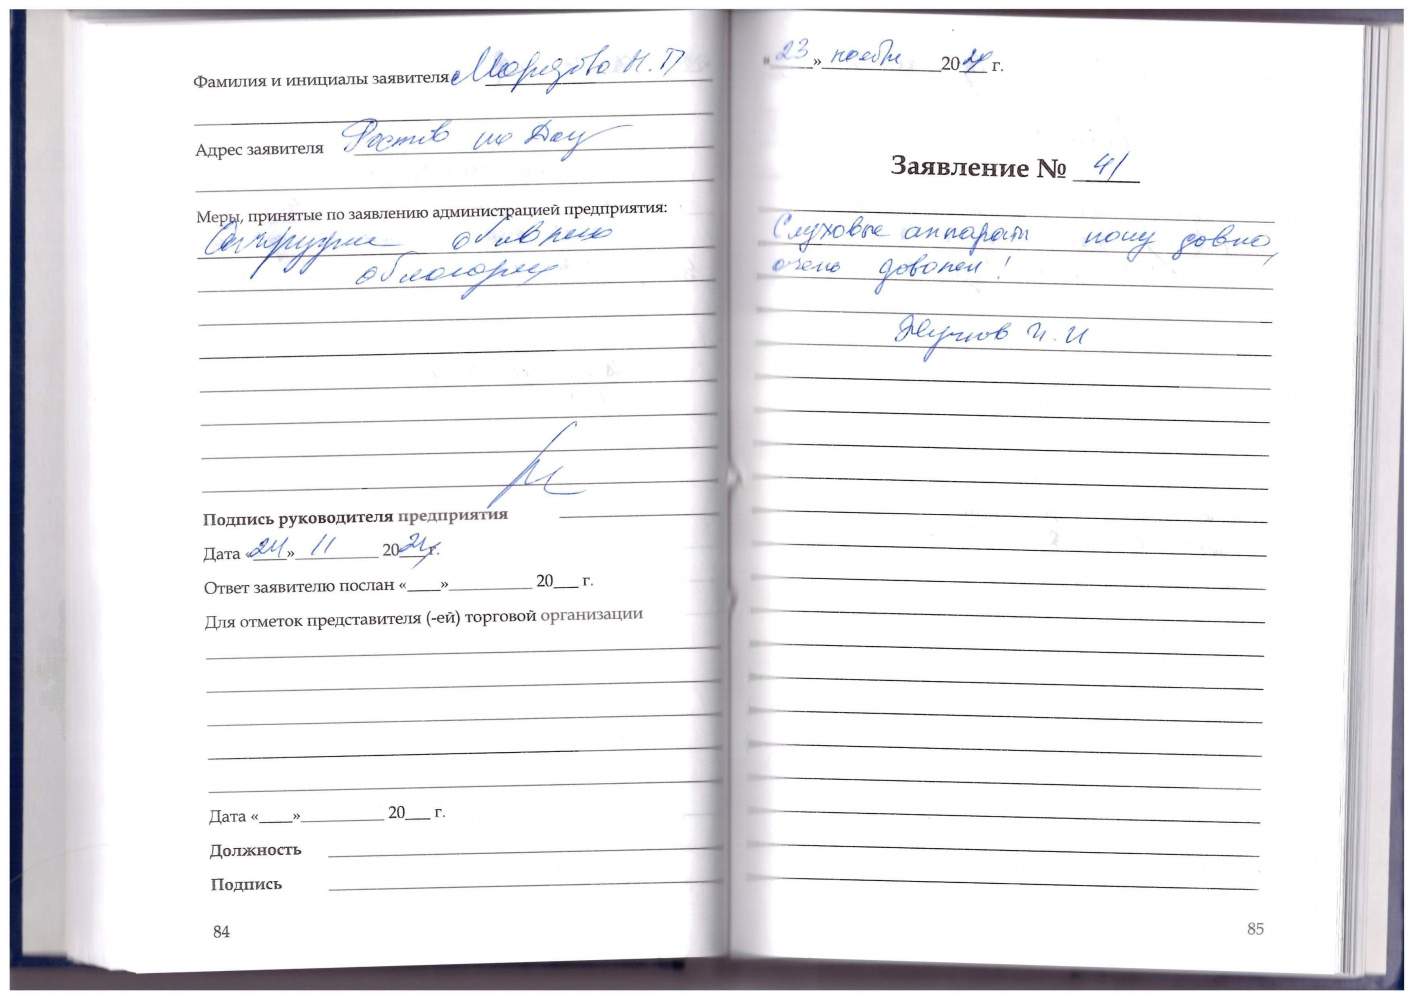 Фамилия и инициалы заявителя Н.П
Адрес заявителя Ростов на Дону
Меры, принятые по заявлению администрацией предприятия:
объявлена
Подпись руководителя предприятия
Дата «24» 11 2024 г.
Ответ заявителю послан «____»__________ 20___ г.
Для отметок представителя (-ей) торговой организации
Дата «____»__________ 20___ г.
Должность
Подпись
84
«23» ноября 2024 г.
Заявление № 41
Слуховые аппараты ношу давно,
очень доволен!
И.И
85